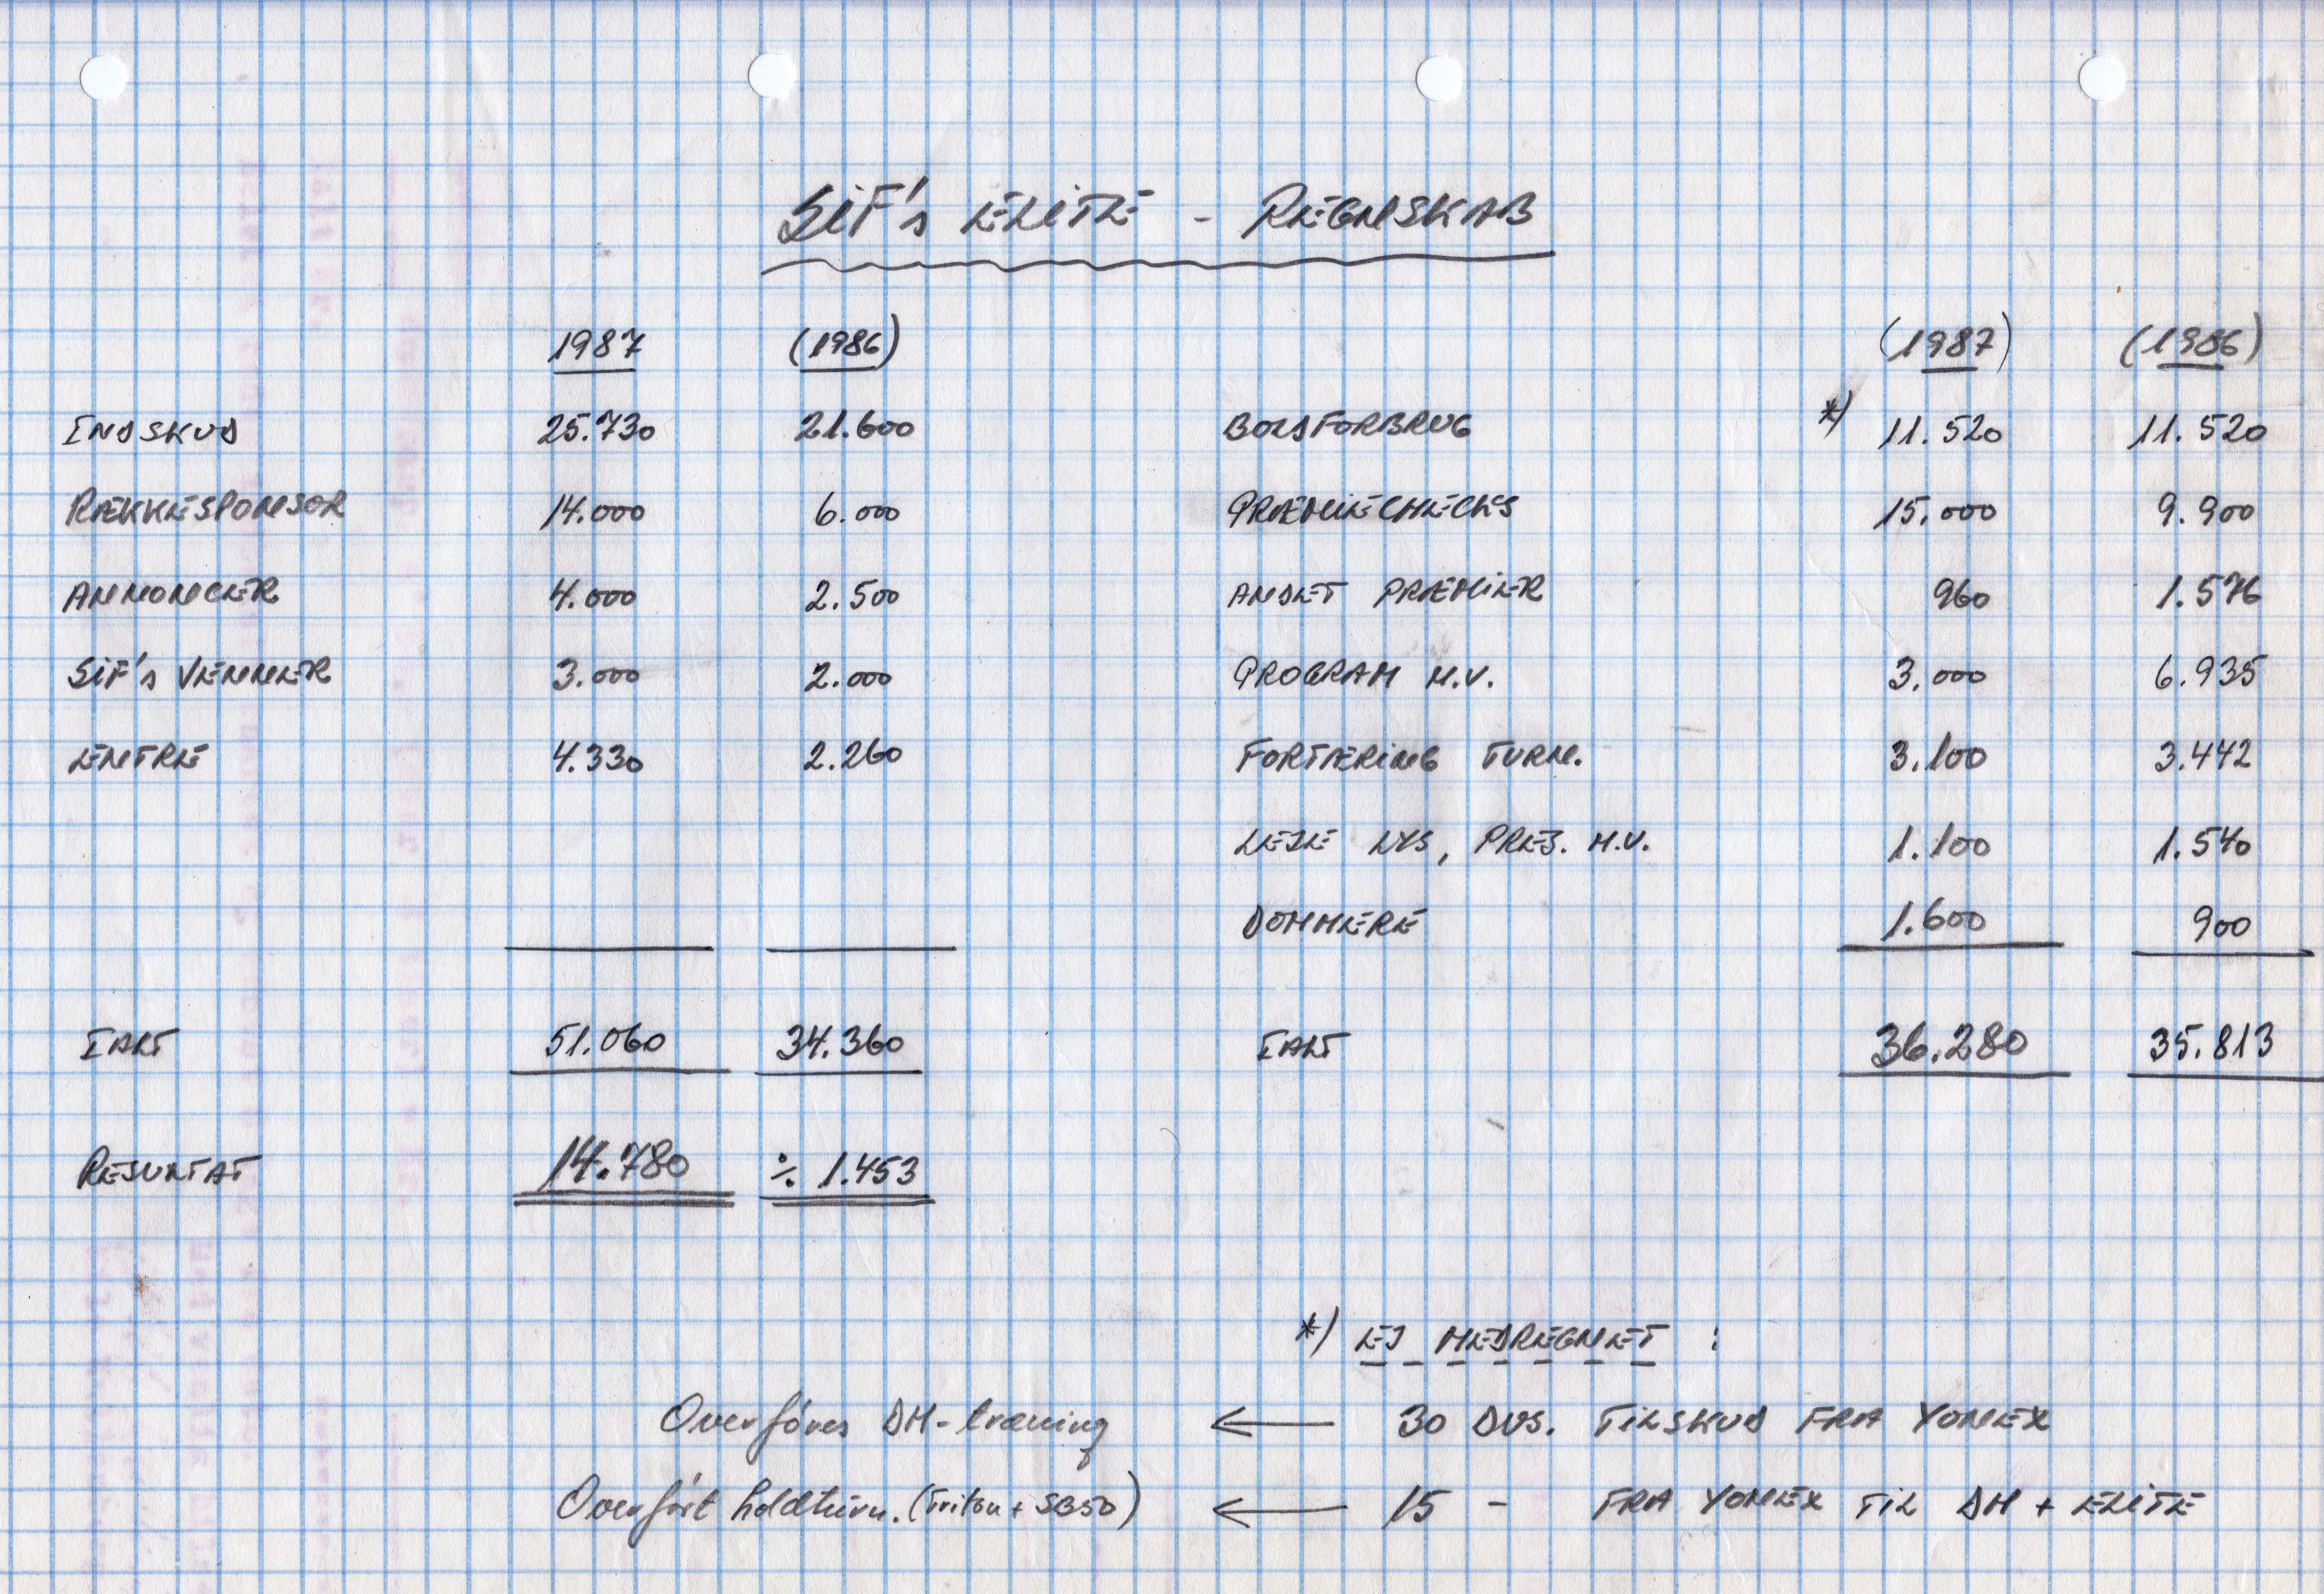 SIF's ELITE - REGNSKAB
1987 (1986) (1987) (1986)
INDSKUD 25.730 21.600 BOLDFORBRUG *) 11.520 11.520
RÆKKESPONSOR 14.000 6.000 PRÆMIECHECKS 15.000 9.900
ANNONCER 4.000 2.500 ANDET PRÆMIER 960 1.576
SIF's VENNER 3.000 2.000 PROGRAM M.V. 3.000 6.935
ENTRE 4.330 2.260 FORTÆRING TURN. 3.100 3.442
LEJE LYS, PRES. M.V. 1.100 1.540
DOMMERE 1.600 900
IALT 51.060 34.360 IALT 36.280 35.813
RESULTAT 14.780 ÷ 1.453
*) EJ MEDREGNET :
Overføres DM-træning ← 30 DUS. TILSKUD FRA YONEX
Overført holdturn. (Triton + SG50) ← 15 - FRA YONEX TIL DM + ELITE